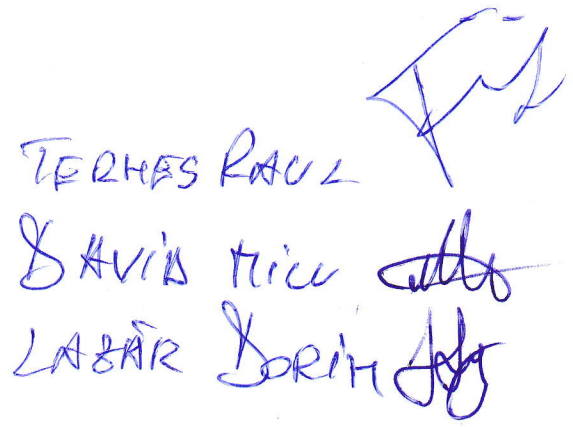 TERHES RAUL
DAVID MICU
LAZĂR DORIN